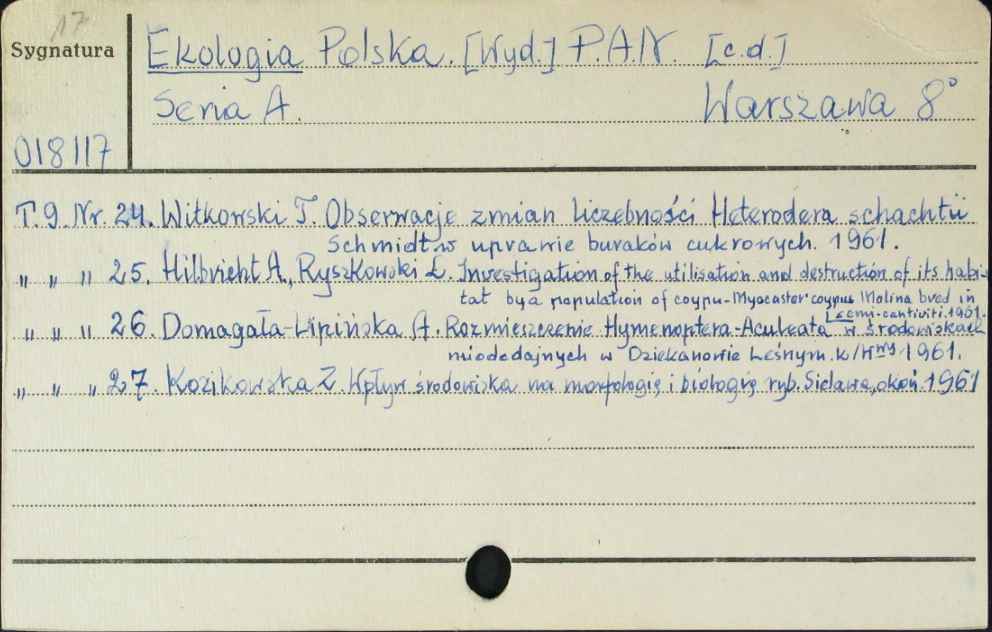 17
Sygnatura
Ekologia Polska. [Wyd.] P.A.N. [c.d.]
Seria A. Warszawa 8°
018117
T. 9. Nr. 24. Witkowski T. Obserwacje zmian liczebności Heterodera schachtii
Schmidt w uprawie buraków cukrowych. 1961.
" " " 25. Hilbricht A., Ryszkowski L. Investigation of the utilisation and destruction of its habi-
tat by a population of coypu-Myocastor coypus Molina bred in
[semi-cantiviti. 1961.
" " " 26. Domagała-Lipińska A. Rozmieszczenie Hymenoptera-Aculeata w środowiskach
miododajnych w Dziekanowie Leśnym k/Wwy 1961.
" " " 27. Kozikowska Z. Wpływ środowiska na morfologię i biologię ryb. Sielawa, okoń. 1961